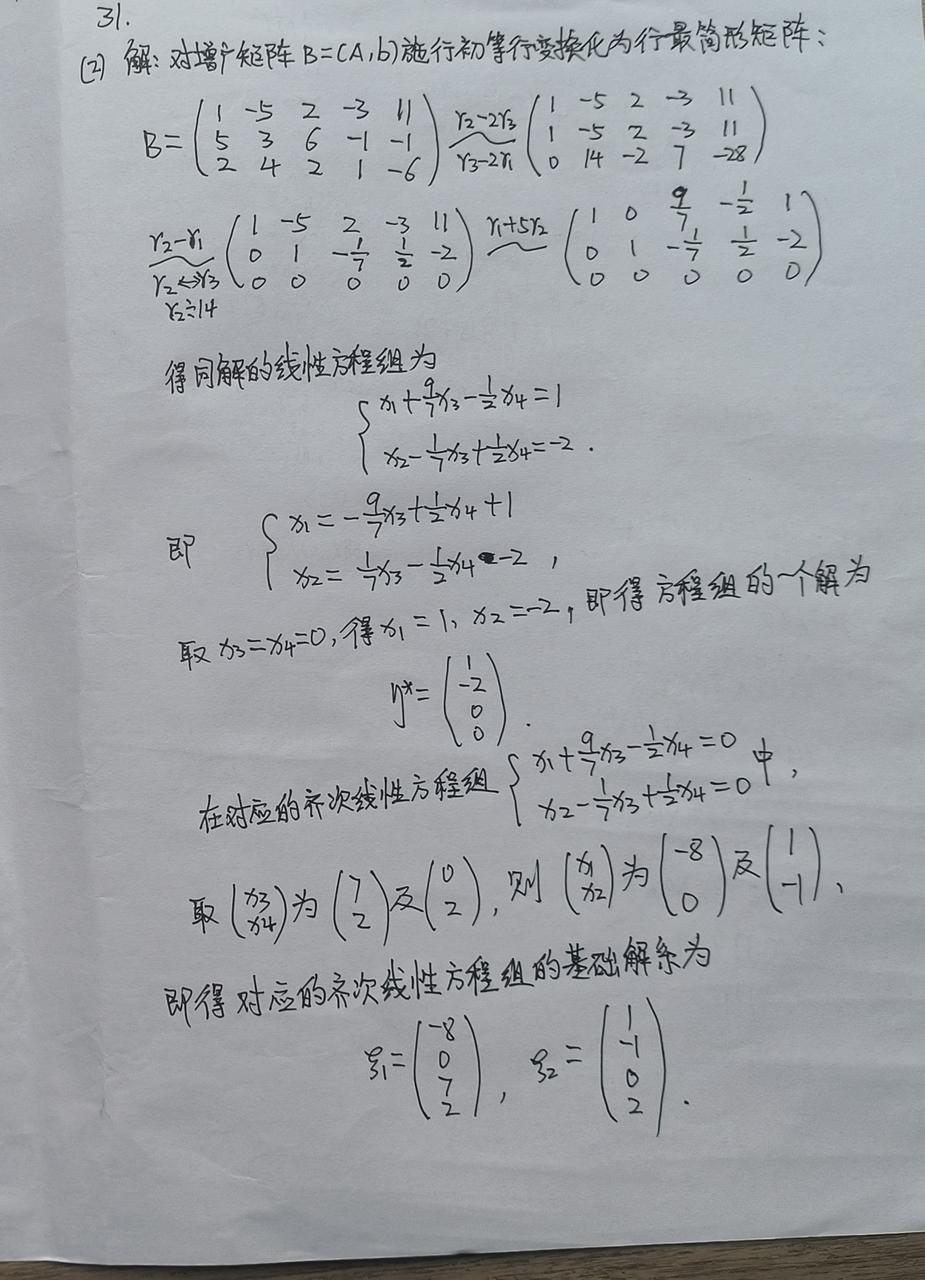 31.
(2) 解: 对增广矩阵 B=(A,b)施行初等行变换化为行最简形矩阵:
B= ( 1 -5 2 -3 11 ; 5 3 6 -1 -1 ; 2 4 2 1 -6 ) r2-2r3 r3-2r1 ( 1 -5 2 -3 11 ; 1 -5 2 -3 11 ; 0 14 -2 7 -28 )
r2-r1 r2↔r3 r2÷14 ( 1 -5 2 -3 11 ; 0 1 -1/7 1/2 -2 ; 0 0 0 0 0 ) r1+5r2 ( 1 0 9/7 -1/2 1 ; 0 1 -1/7 1/2 -2 ; 0 0 0 0 0 )
得同解的线性方程组为
{ x1+9/7x3-1/2x4=1
x2-1/7x3+1/2x4=-2 .
即 { x1=-9/7x3+1/2x4+1
x2=1/7x3-1/2x4-2 ,
取 x3=x4=0, 得 x1=1, x2=-2, 即得方程组的一个解为
η*= ( 1 ; -2 ; 0 ; 0 ) .
在对应的齐次线性方程组 { x1+9/7x3-1/2x4=0 ; x2-1/7x3+1/2x4=0 中,
取 (x3 ; x4) 为 (7 ; 2) 及 (0 ; 2), 则 (x1 ; x2) 为 (-8 ; 0) 及 (1 ; -1),
即得对应的齐次线性方程组的基础解系为
ξ1= ( -8 ; 0 ; 7 ; 2 ) , ξ2= ( 1 ; -1 ; 0 ; 2 ) .